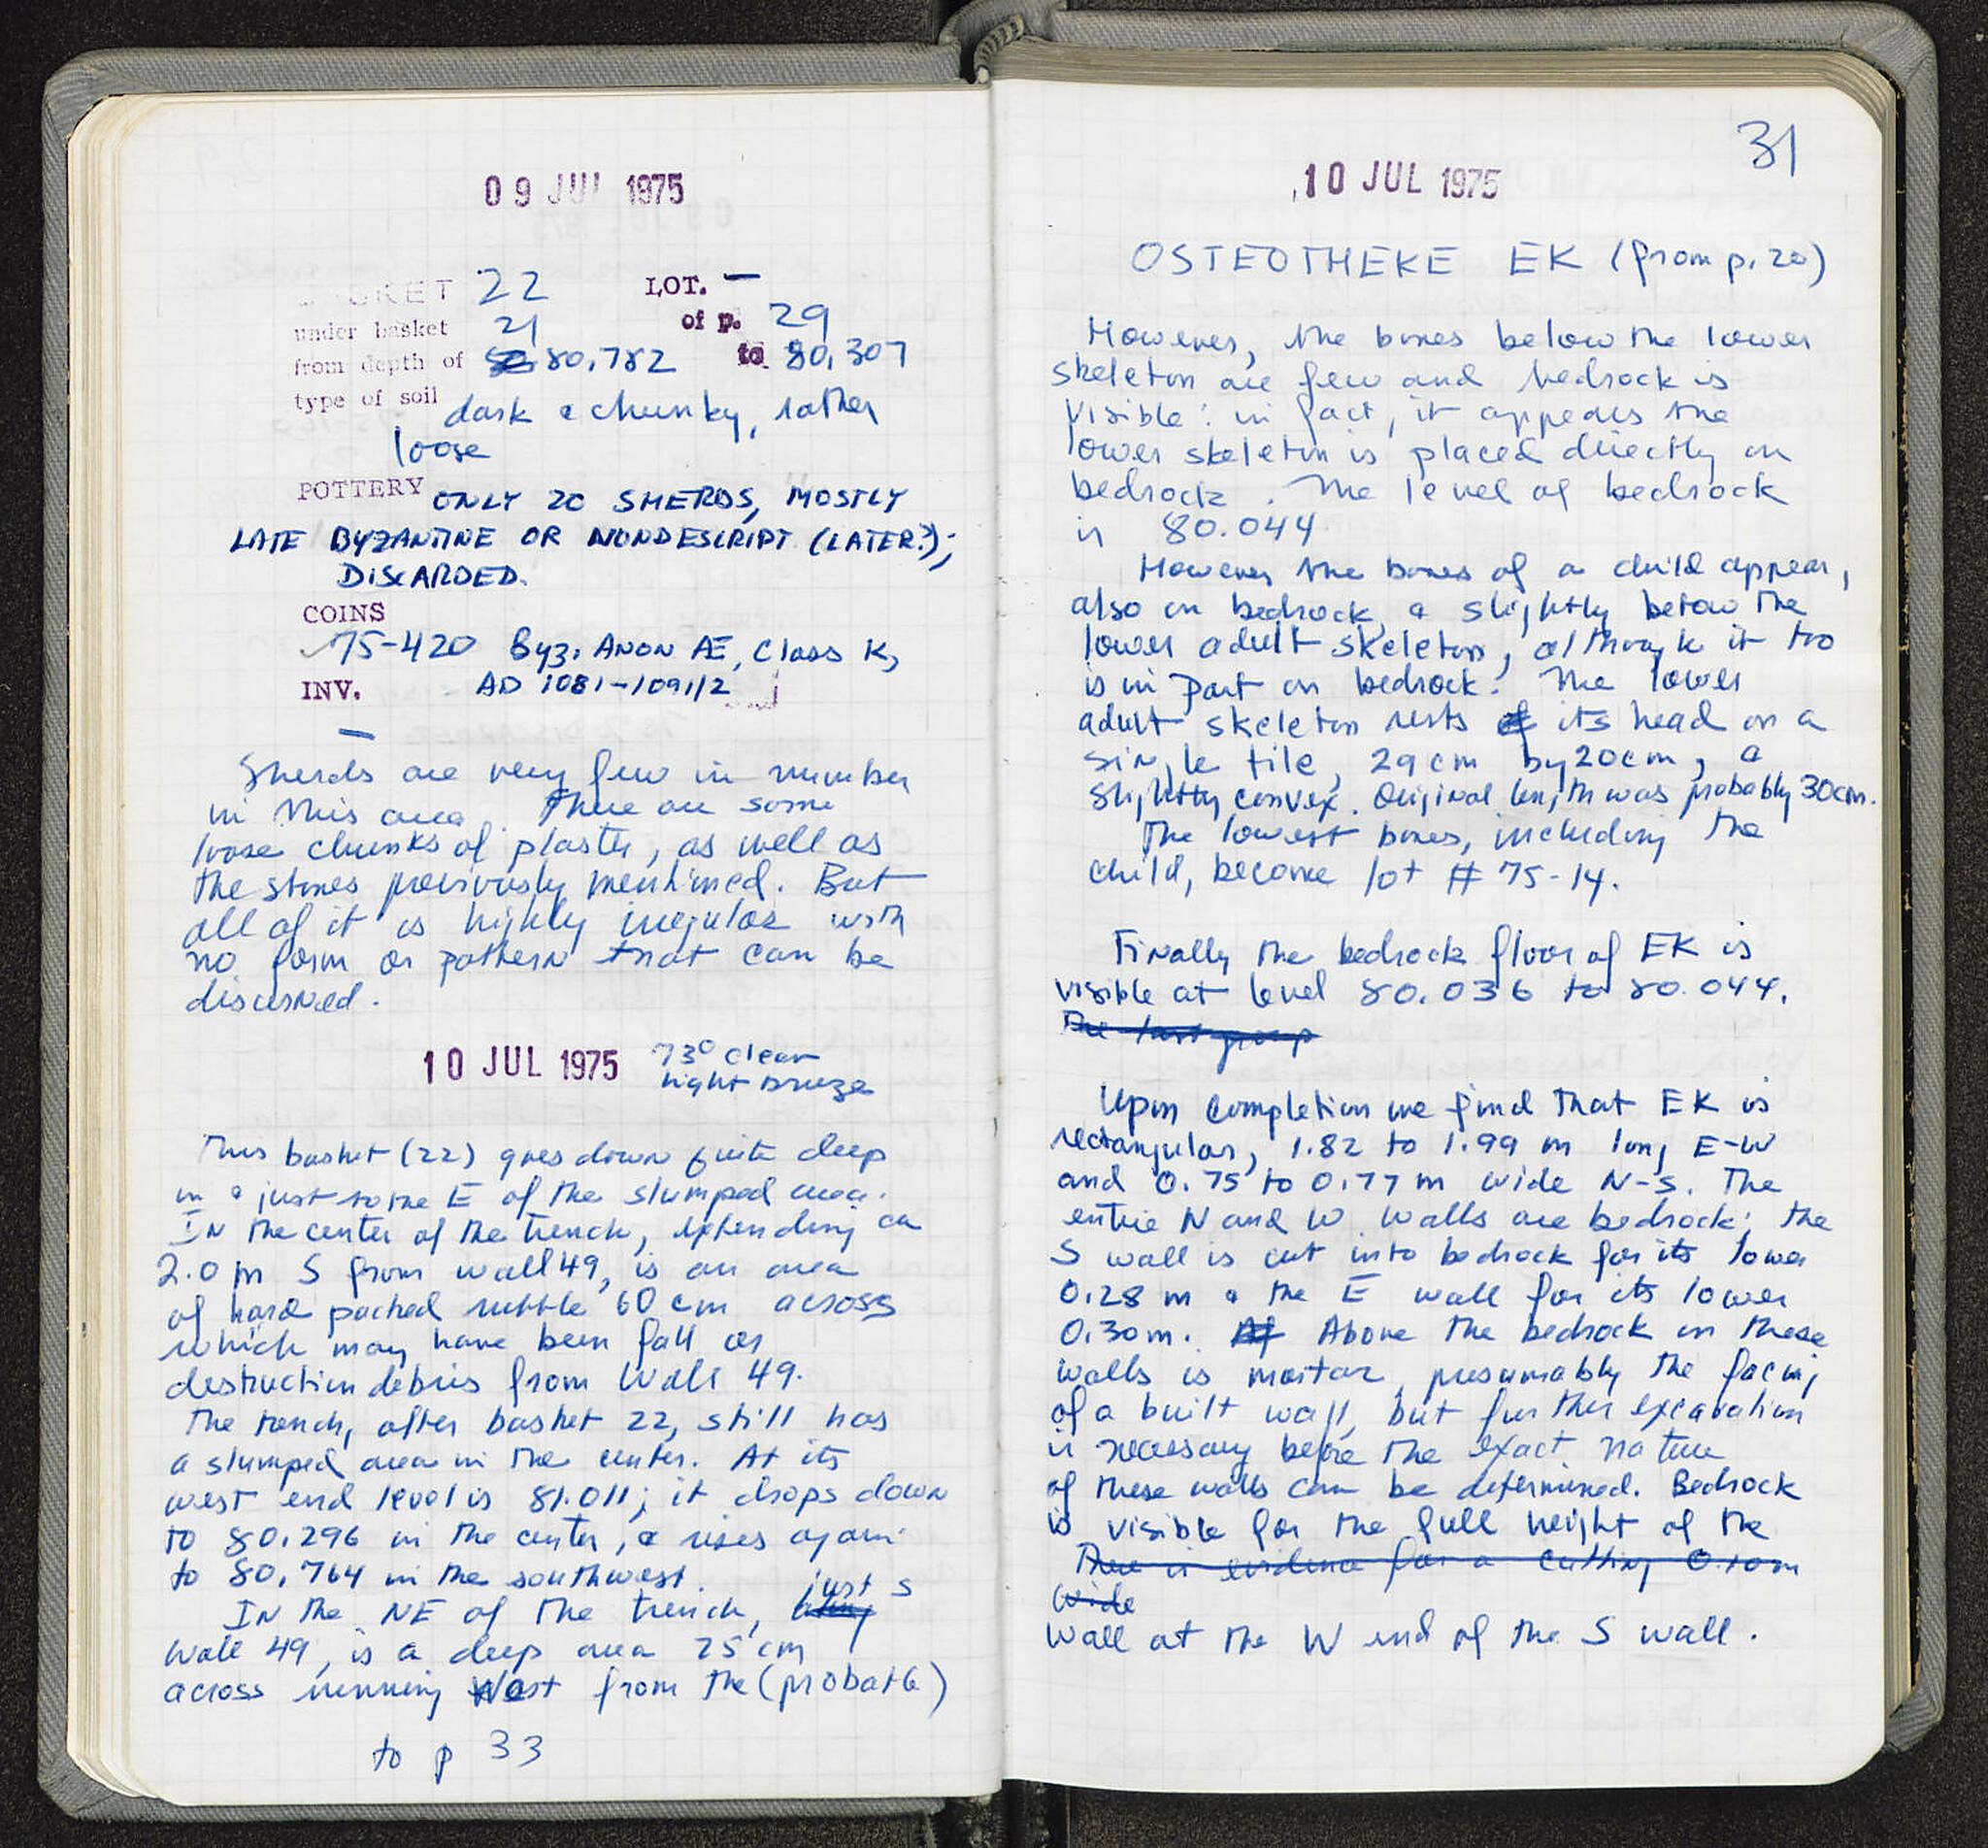 09 JUL 1975
BASKET 22 LOT. —
under basket 21 of p. 29
from depth of 80,782 to 80,307
type of soil dark & chunky, rather
loose
POTTERY ONLY 20 SHERDS, MOSTLY
LATE BYZANTINE OR NONDESCRIPT (LATER?);
DISCARDED.
COINS
✓75-420 Byz. ANON Æ, Class K,
INV. AD 1081-1091/2
—
Sherds are very few in number
in this area. There are some
loose chunks of plaster, as well as
the stones previously mentioned. But
all of it is highly irregular with
no form or pattern that can be
discerned.
10 JUL 1975 73° clear
light breeze
This basket (22) goes down quite deep
in & just to the E of the slumped area.
IN the center of the trench, extending ca
2.0 m S from wall 49, is an area
of hard packed rubble 60 cm across
which may have been fall or
destruction debris from Wall 49.
The trench, after basket 22, still has
a slumped area in the center. At its
west end level is 81.011; it drops down
to 80.296 in the center, & rises again
to 80.764 in the southwest.
IN the NE of the trench, along just S
Wall 49, is a deep area 25 cm
across running West from the (probable)
to p 33
31
10 JUL 1975
OSTEOTHEKE EK (from p. 20)
However, the bones below the lower
skeleton are few and bedrock is
visible: in fact, it appears the
lower skeleton is placed directly on
bedrock. The level of bedrock
is 80.044
However the bones of a child appear,
also on bedrock & slightly below the
lower adult skeleton, although it too
is in part on bedrock. The lower
adult skeleton rests its head on a
single tile, 29 cm by 20 cm, &
slightly convex. Original length was probably 30 cm.
The lowest bones, including the
child, become lot # 75-14.
Finally the bedrock floor of EK is
visible at level 80.036 to 80.044.
The last group
Upon completion we find that EK is
rectangular, 1.82 to 1.99 m long E-W
and 0.75 to 0.77 m wide N-S. The
entire N and W walls are bedrock; the
S wall is cut into bedrock for its lower
0.28 m & the E wall for its lower
0.30 m. Above the bedrock in these
walls is mortar, presumably the facing
of a built wall, but further excavation
is necessary before the exact nature
of these walls can be determined. Bedrock
is visible for the full height of the
There is evidence for a cutting 0.10 m
wide
wall at the W end of the S wall.